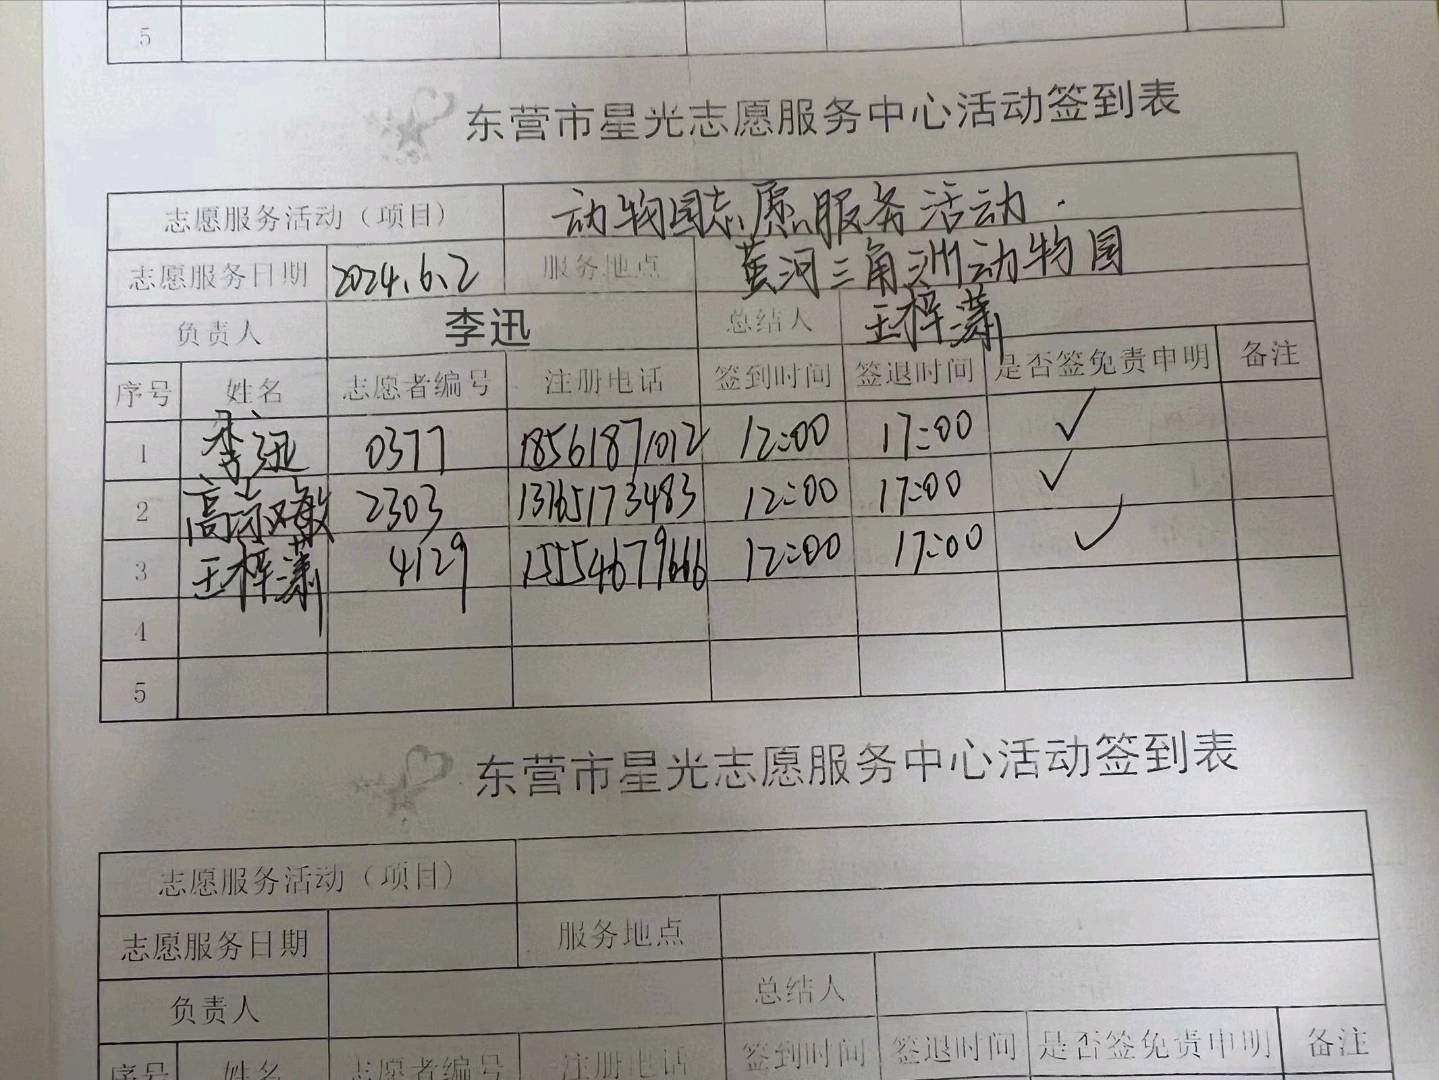 5
东营市星光志愿服务中心活动签到表
志愿服务活动（项目） 动物园志愿服务活动.
志愿服务日期 2024.6.2 服务地点 黄河三角洲动物园
负责人 李迅 总结人 王梓潇
序号 姓名 志愿者编号 注册电话 签到时间 签退时间 是否签免责申明 备注
1 李迅 0377 18561871012 12:00 17:00 ✓
2 2303 13165173483 12:00 17:00 ✓
3 王梓潇 4129 15554679666 12:00 17:00 ✓
4
5
东营市星光志愿服务中心活动签到表
志愿服务活动（项目）
志愿服务日期 服务地点
负责人 总结人
序号 姓名 志愿者编号 注册电话 签到时间 签退时间 是否签免责申明 备注